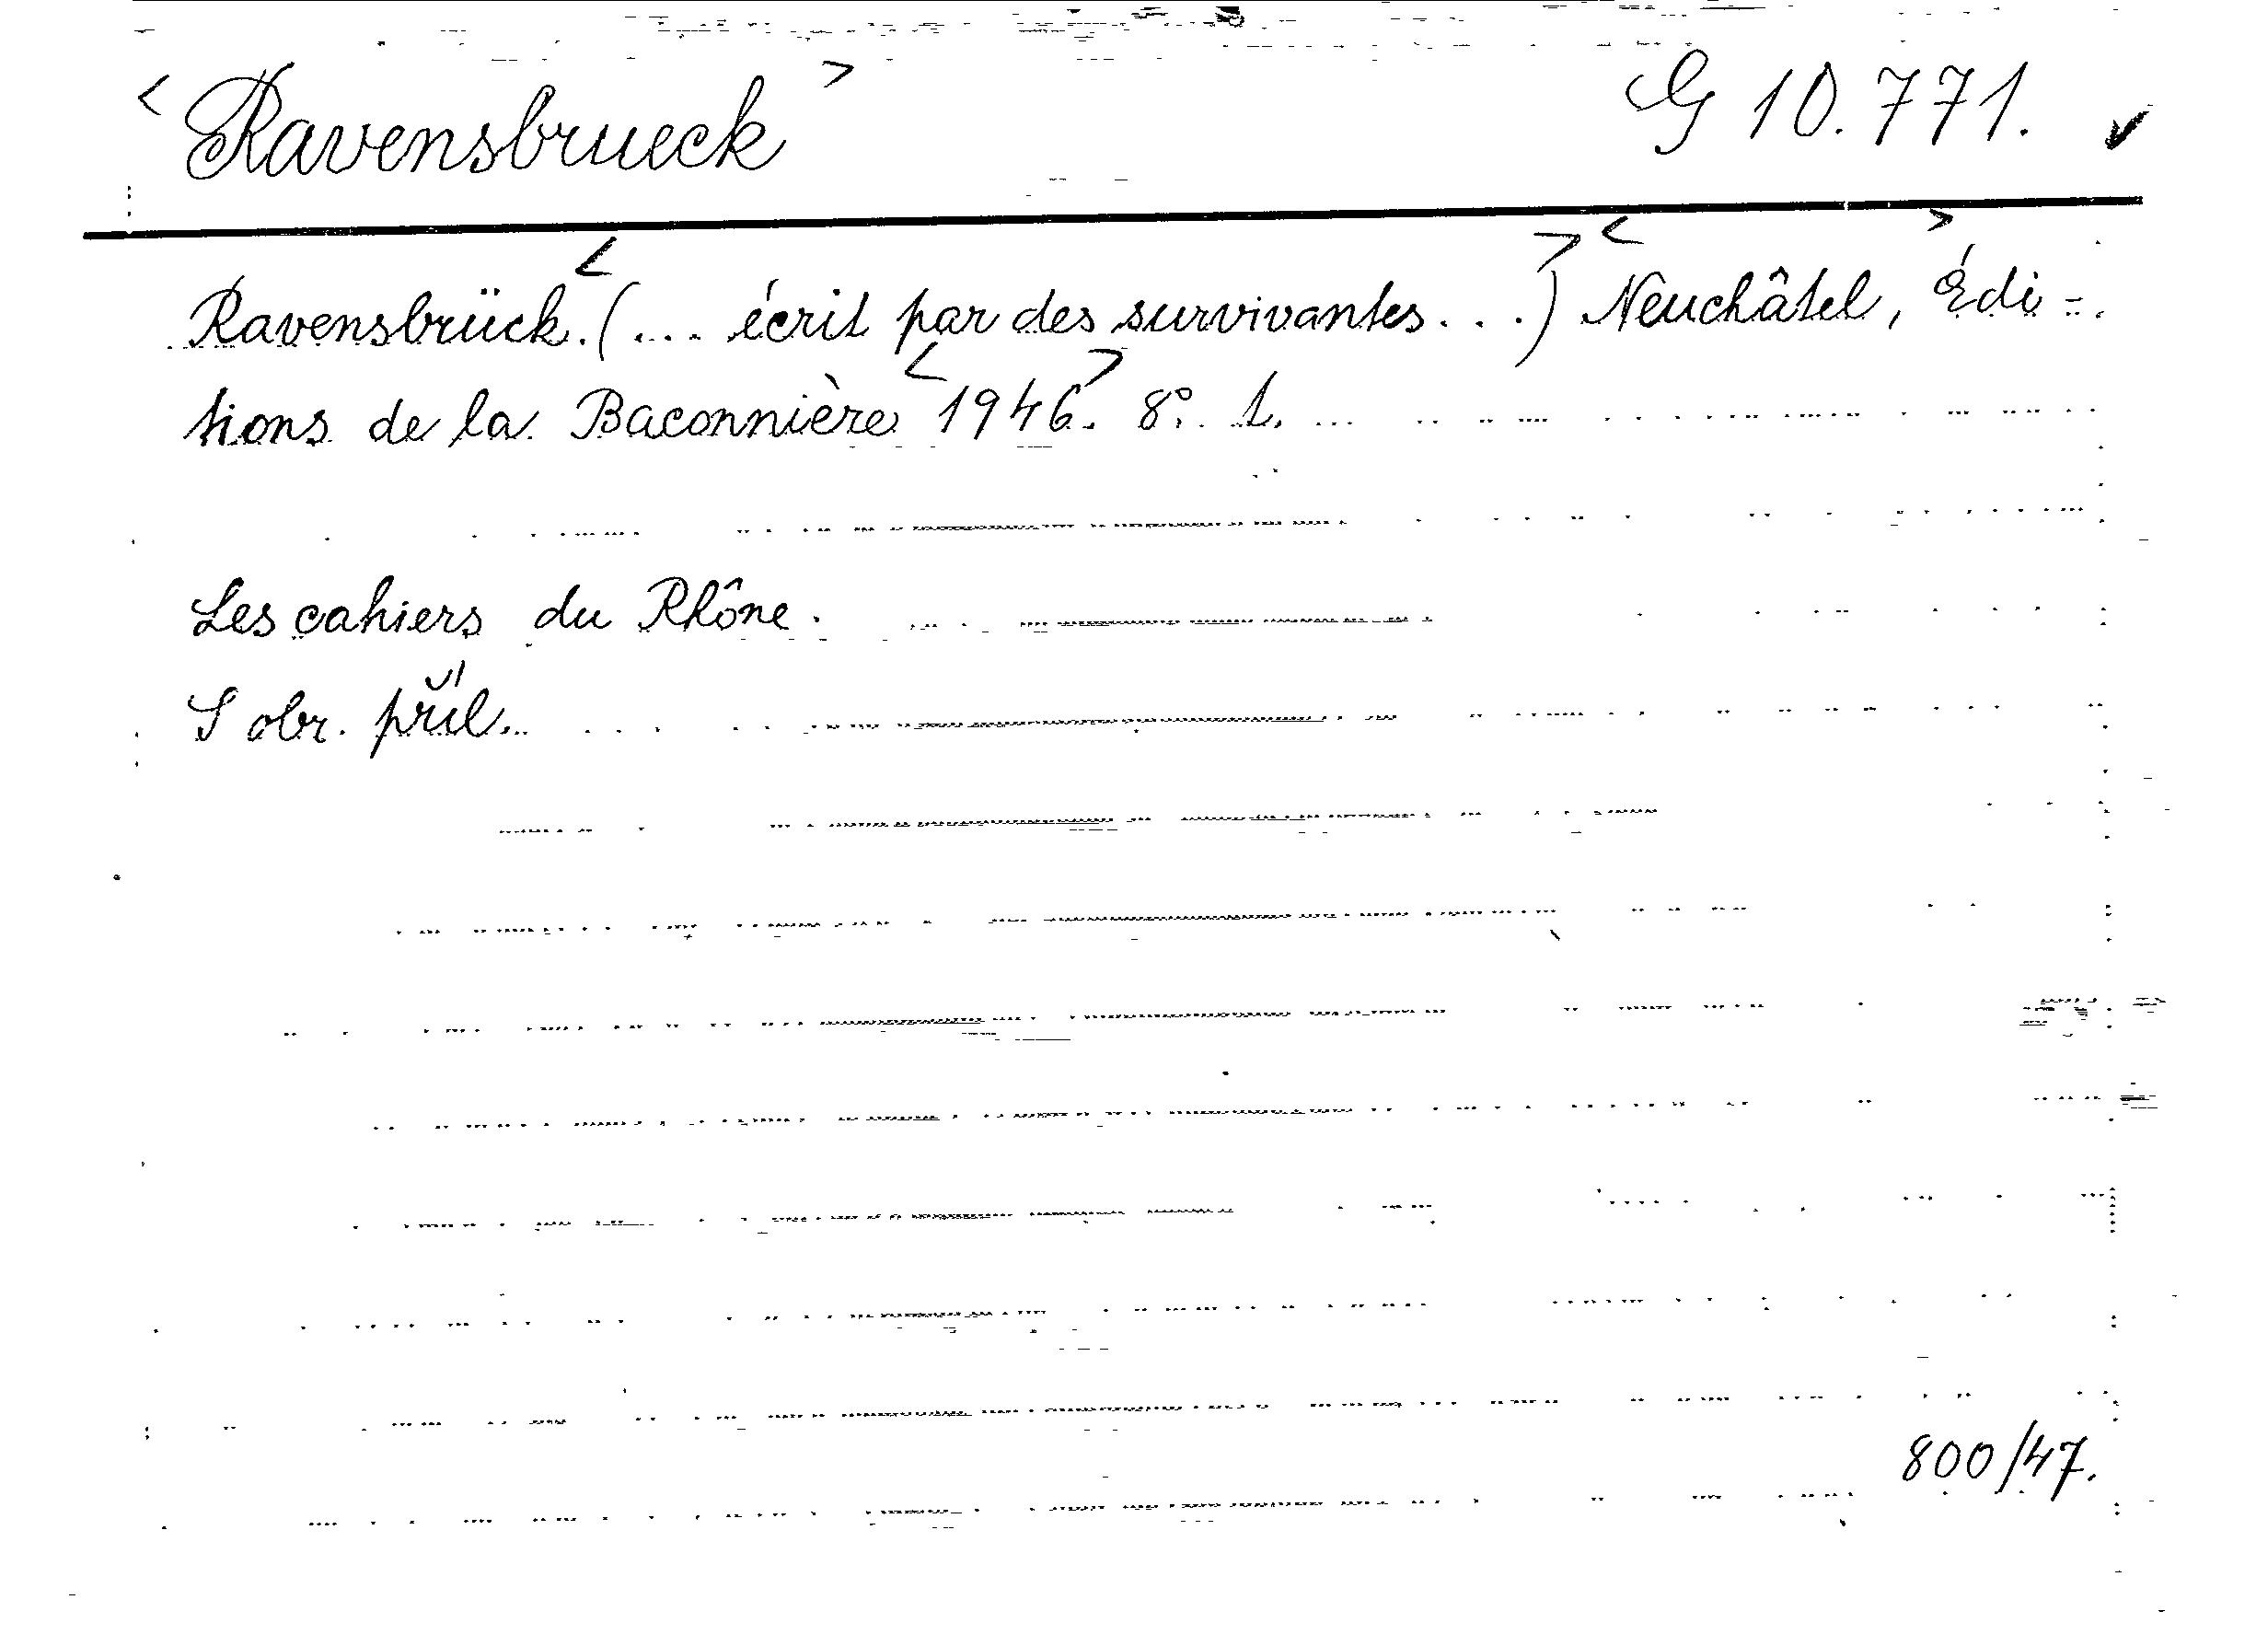 < Ravensbrueck > G 10.771. ✓
Ravensbrück. <(... écrit par des survivantes...)> <Neuchâtel,> Édi=
tions de la Baconnière <1946>. 8°. 1.
Les cahiers du Rhône.
S obr. příl.
800/47.